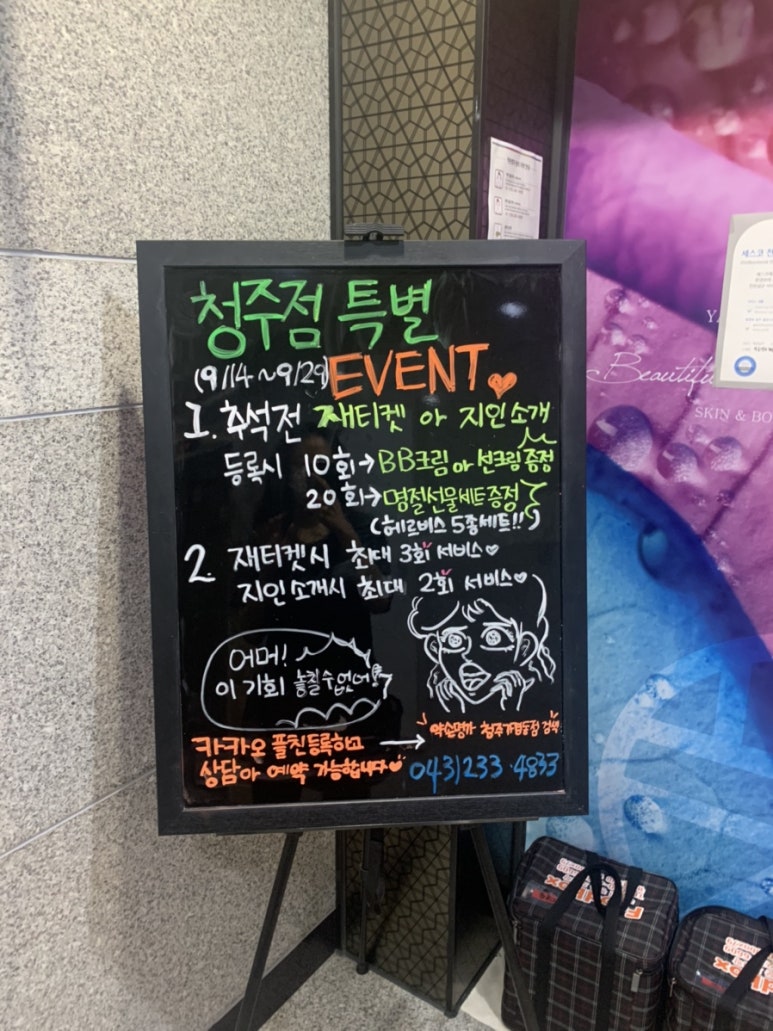 청주점 특별
(9/14~9/29) EVENT
1. 추석전 재티켓 아 지인소개
등록시 10회→BB크림 아 썬크림증정
20회→명절선물세트증정
(헤르비스 5종세트!!)
2 재티켓시 최대 3회 서비스♡
지인소개시 최대 2회 서비스♡
어머!
이 기회 놓칠수없어!
카카오 플친등록하고 → 약손명가 청주가경동점 검색
상담아 예약 가능합니다♡ 043)233·4833
세스코
Beautiful
SKIN & BO